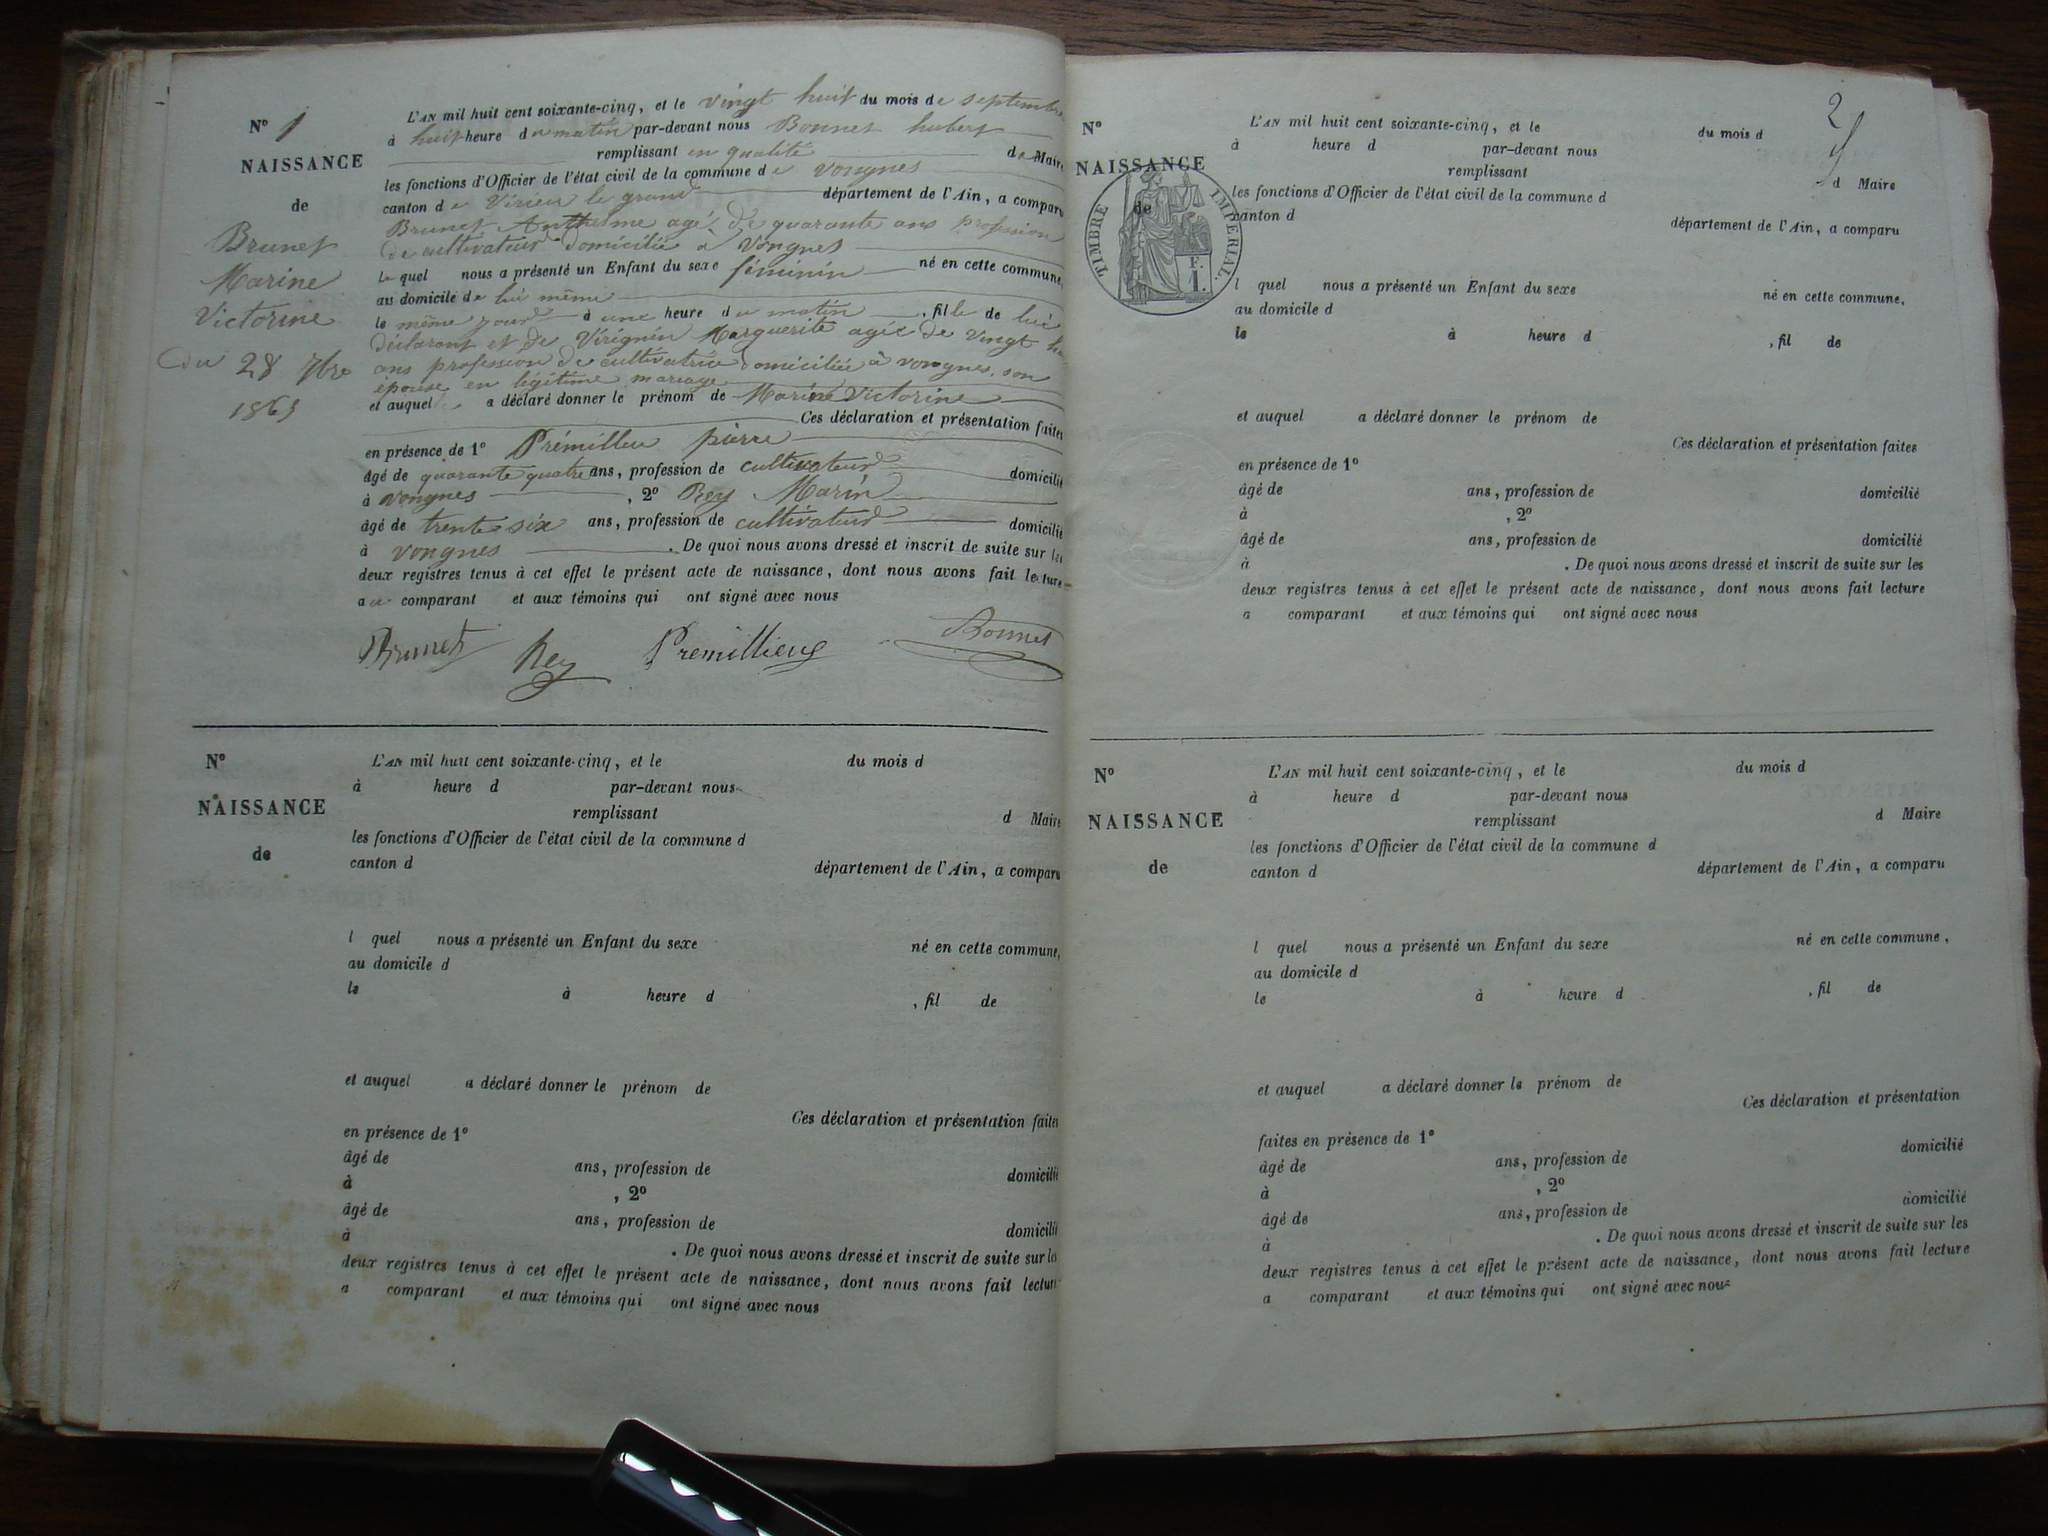 N° 1
NAISSANCE
de
Brunet
Marine
Victorine
du 28 7bre
1865
L'AN mil huit cent soixante-cinq, et le vingt huit du mois de septembre
à huit heure du matin par-devant nous Bonnet hubert
remplissant en qualité de Maire
les fonctions d'Officier de l'état civil de la commune de vongnes
canton de Virieu le grand département de l'Ain, a comparu
Brunet Anthelme agé de quarante ans profession
de cultivateur domicilié à Vongnes
le quel nous a présenté un Enfant du sexe féminin né en cette commune,
au domicile de lui même
le même jour à une heure du matin, fille de lui
déclarant et de Virignin Marguerite agée de vingt
ans profession de cultivatrice domiciliée à vongnes, son
épouse en légitime mariage
et auquel a déclaré donner le prénom de Marine Victorine
Ces déclaration et présentation faites
en présence de 1° Prémillieu pierre
âgé de quarante quatre ans, profession de cultivateur domicilié
à vongnes, 2° Rey Marin
âgé de trente six ans, profession de cultivateur domicilié
à vongnes. De quoi nous avons dressé et inscrit de suite sur les
deux registres tenus à cet effet le présent acte de naissance, dont nous avons fait lecture
au comparant et aux témoins qui ont signé avec nous
Brunet Rey Premillieu Bonnet
N°
NAISSANCE
de
L'AN mil huit cent soixante-cinq, et le du mois d
à heure d par-devant nous
remplissant d Maire
les fonctions d'Officier de l'état civil de la commune d
canton d département de l'Ain, a comparu
l quel nous a présenté un Enfant du sexe né en cette commune,
au domicile d
le à heure d, fil de
et auquel a déclaré donner le prénom de
Ces déclaration et présentation faites
en présence de 1°
âgé de ans, profession de domicilié
à, 2°
âgé de ans, profession de domicilié
à. De quoi nous avons dressé et inscrit de suite sur les
deux registres tenus à cet effet le présent acte de naissance, dont nous avons fait lecture
a comparant et aux témoins qui ont signé avec nous
2
N°
NAISSANCE
de
TIMBRE IMPÉRIAL.
F.
1.
L'AN mil huit cent soixante-cinq, et le du mois d
à heure d par-devant nous
remplissant d Maire
les fonctions d'Officier de l'état civil de la commune d
canton d département de l'Ain, a comparu
l quel nous a présenté un Enfant du sexe né en cette commune,
au domicile d
le à heure d, fil de
et auquel a déclaré donner le prénom de
Ces déclaration et présentation faites
en présence de 1°
âgé de ans, profession de domicilié
à, 2°
âgé de ans, profession de domicilié
à. De quoi nous avons dressé et inscrit de suite sur les
deux registres tenus à cet effet le présent acte de naissance, dont nous avons fait lecture
a comparant et aux témoins qui ont signé avec nous
N°
NAISSANCE
de
L'AN mil huit cent soixante-cinq, et le du mois d
à heure d par-devant nous
remplissant d Maire
les fonctions d'Officier de l'état civil de la commune d
canton d département de l'Ain, a comparu
l quel nous a présenté un Enfant du sexe né en cette commune,
au domicile d
le à heure d, fil de
et auquel a déclaré donner le prénom de
Ces déclaration et présentation
faites en présence de 1°
âgé de ans, profession de domicilié
à, 2°
âgé de ans, profession de domicilié
à. De quoi nous avons dressé et inscrit de suite sur les
deux registres tenus à cet effet le présent acte de naissance, dont nous avons fait lecture
a comparant et aux témoins qui ont signé avec nous